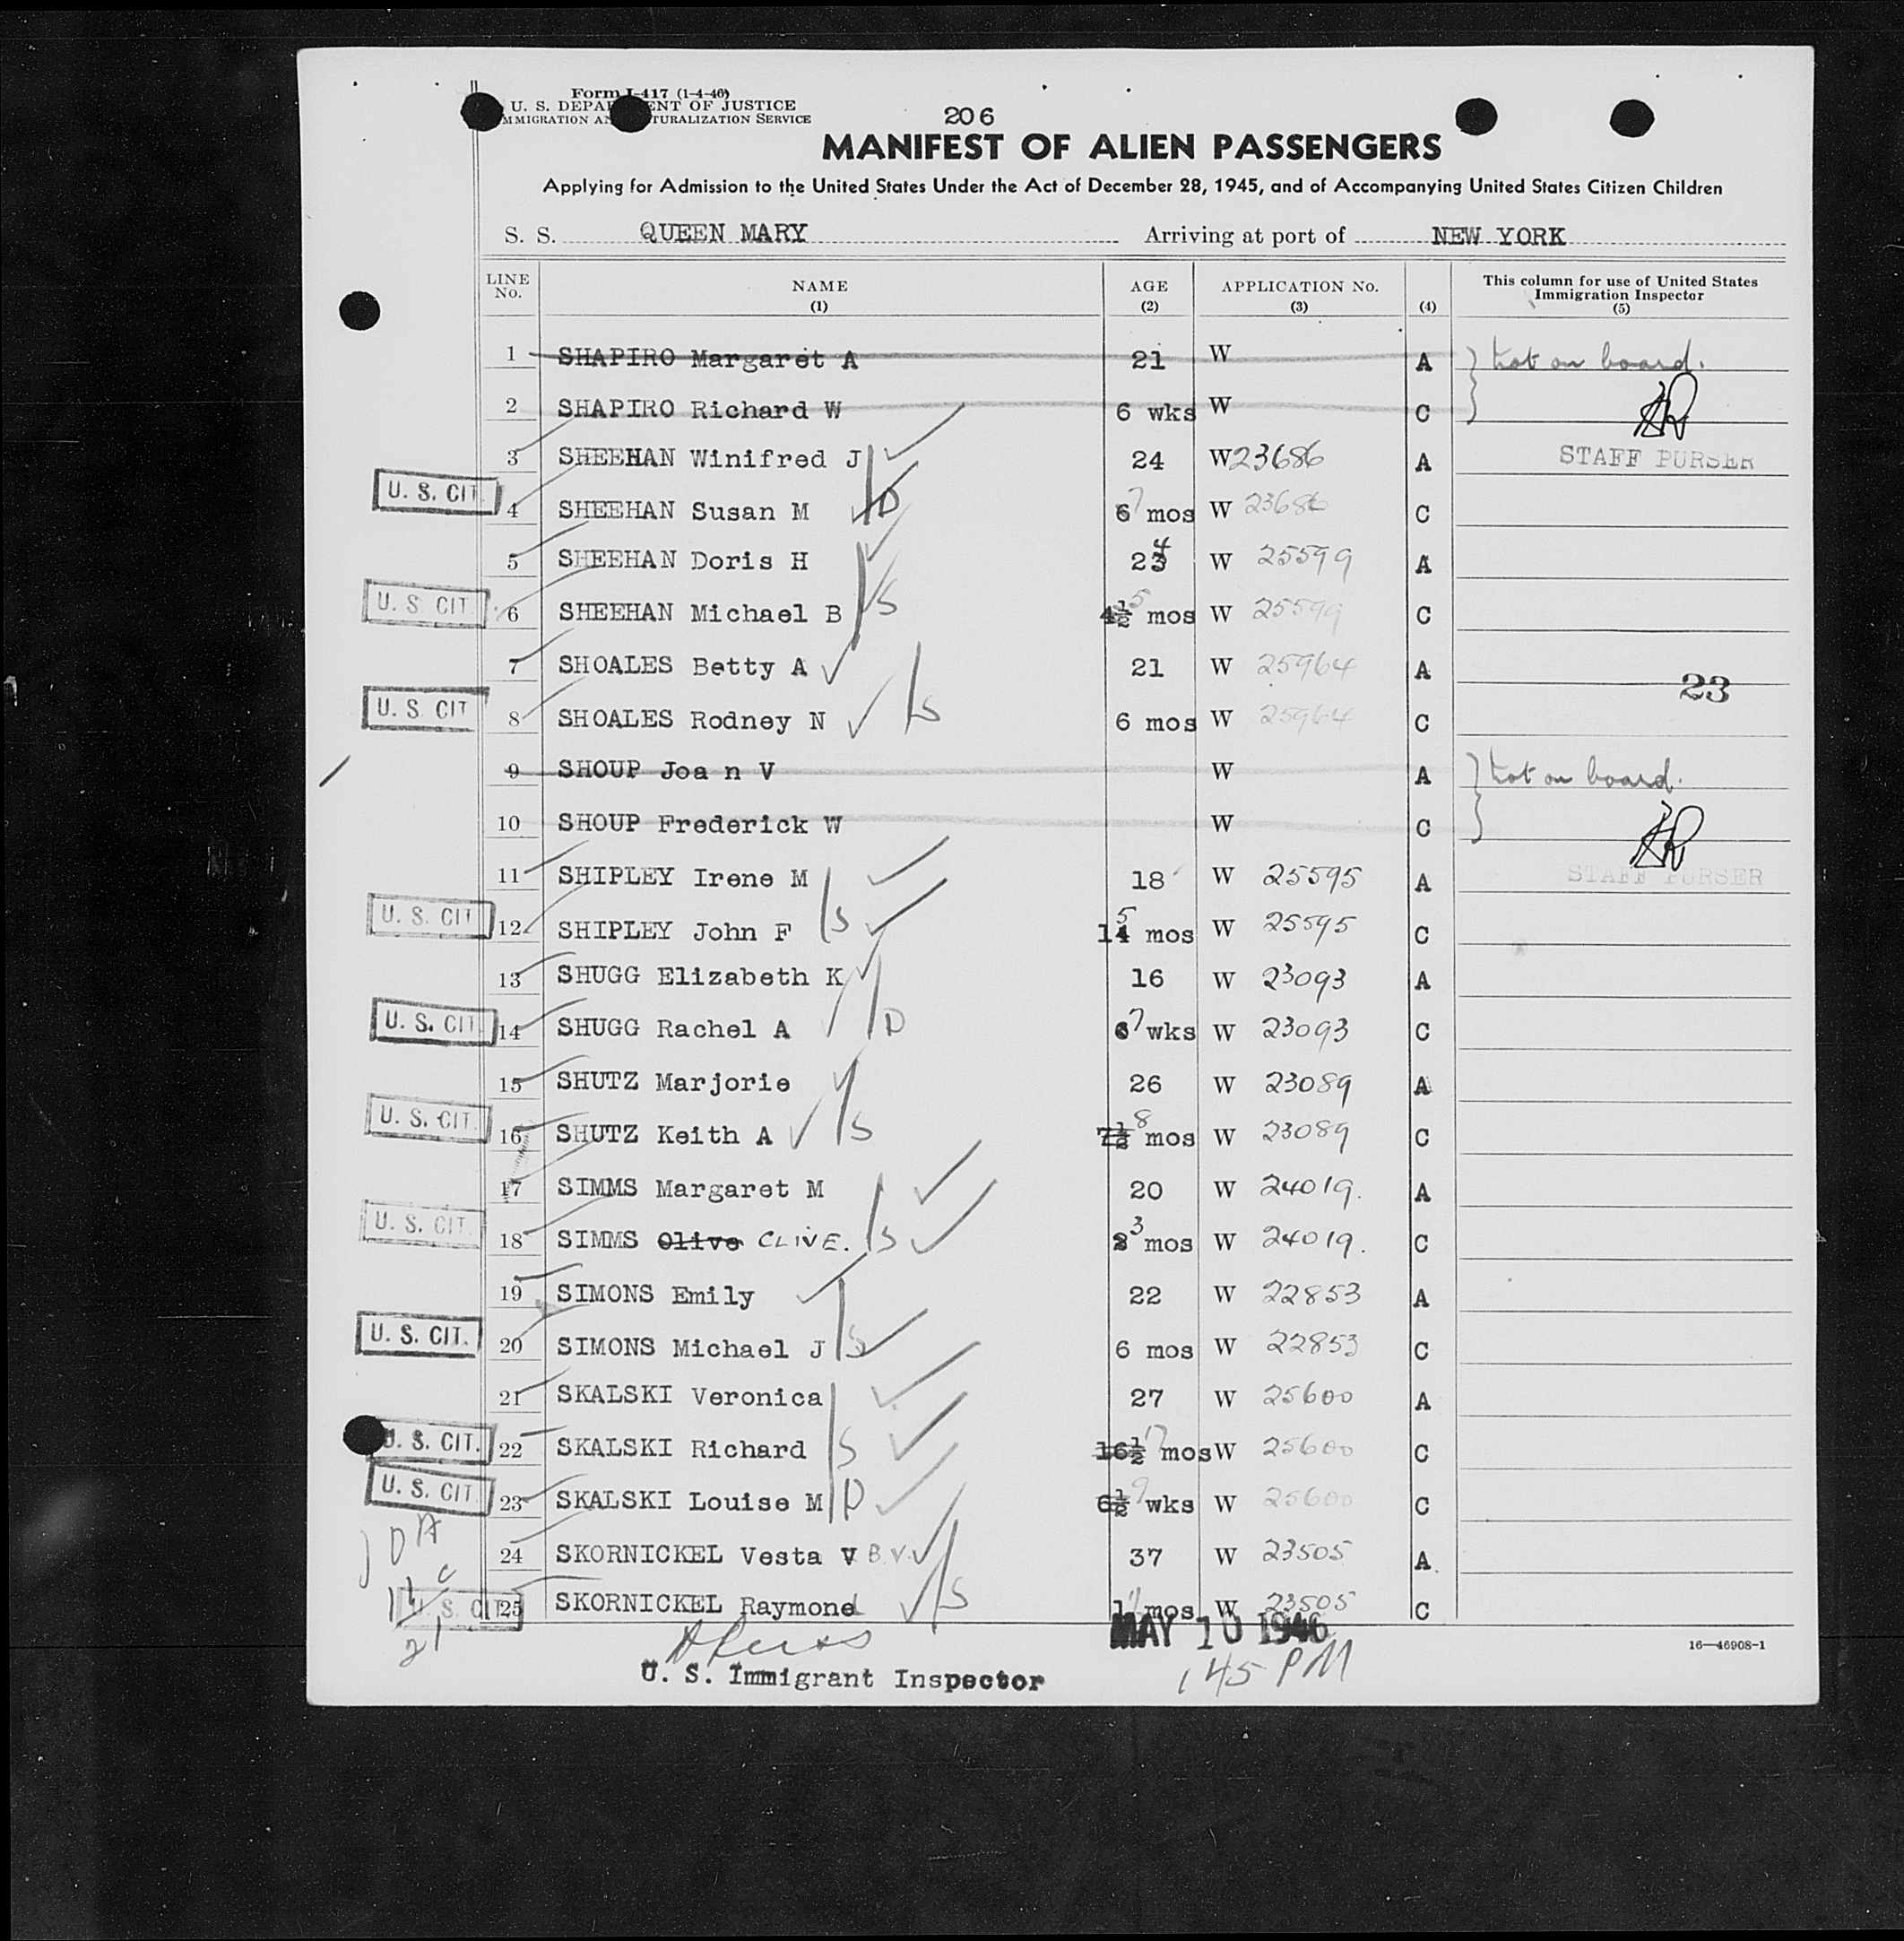 Form I-417 (1-4-46)
U. S. DEPA ENT OF JUSTICE
MMIGRATION A TURALIZATION SERVICE
206
MANIFEST OF ALIEN PASSENGERS
Applying for Admission to the United States Under the Act of December 28, 1945, and of Accompanying United States Citizen Children
S. S. QUEEN MARY Arriving at port of NEW YORK
LINE No. NAME (1) AGE (2) APPLICATION No. (3) (4) This column for use of United States Immigration Inspector (5)
1 SHAPIRO Margaret A 21 W A not on board.
2 SHAPIRO Richard W 6 wks W C
3 SHEEHAN Winifred J 24 W23686 A STAFF PURSER
U. S. CIT. 4 SHEEHAN Susan M D 6 7 mos W 23686 C
5 SHEEHAN Doris H 23 4 W 25599 A
U. S. CIT. 6 SHEEHAN Michael B S 4½ 5 mos W 25599 C
7 SHOALES Betty A 21 W 25964 A 23
U. S. CIT 8 SHOALES Rodney N S 6 mos W 25964 C
9 SHOUP Joa n V W A not on board.
10 SHOUP Frederick W W C
11 SHIPLEY Irene M 18 W 25595 A STAFF PURSER
U. S. CIT 12 SHIPLEY John F S 14 5 mos W 25595 C
13 SHUGG Elizabeth K 16 W 23093 A
U. S. CIT. 14 SHUGG Rachel A D 6 7 wks W 23093 C
15 SHUTZ Marjorie 26 W 23089 A
U. S. CIT. 16 SHUTZ Keith A S 7½ 8 mos W 23089 C
17 SIMMS Margaret M 20 W 24019. A
U. S. CIT. 18 SIMMS Olive CLIVE. S 2 3 mos W 24019. C
19 SIMONS Emily 22 W 22853 A
U. S. CIT. 20 SIMONS Michael J S 6 mos W 22853 C
21 SKALSKI Veronica 27 W 25600 A
U. S. CIT. 22 SKALSKI Richard S 16½ 17 mos W 25600 C
U. S. CIT. 23 SKALSKI Louise M D 6½ 9 wks W 25600 C
24 SKORNICKEL Vesta V B.V. 37 W 23505 A
U. S. CIT. 25 SKORNICKEL Raymond S mos W 23505 C
DA
11 C
21
MAY 10 1946
16—46908-1
U. S. Immigrant Inspector 145 PM